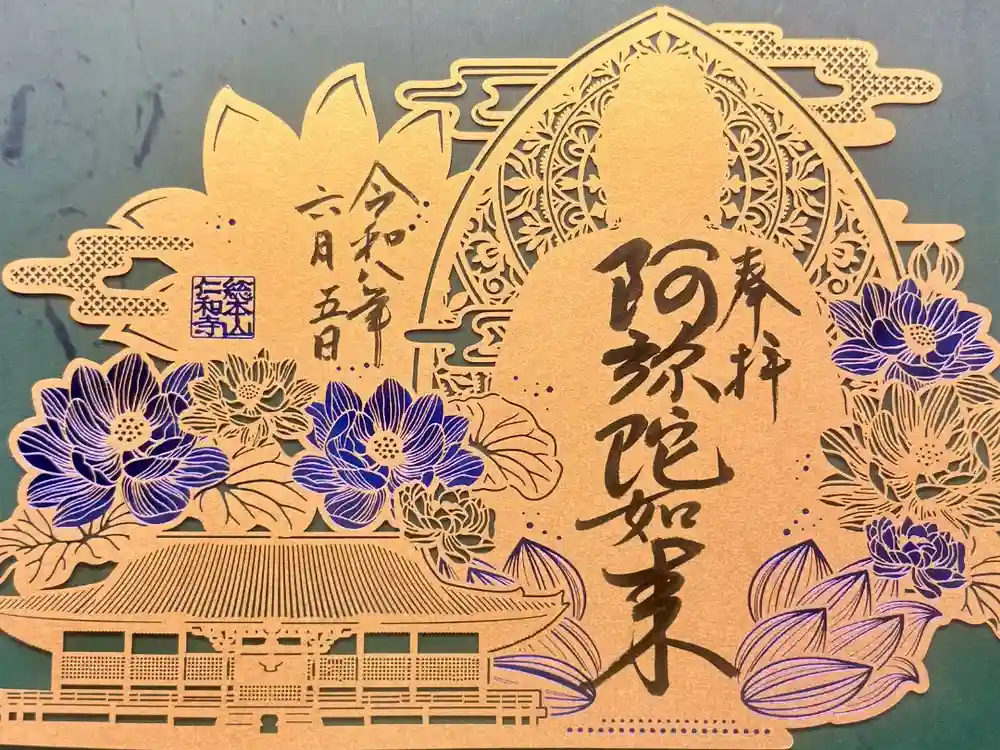 奉拝
阿弥陀如来
令和八年
六月五日
総本山
仁和寺